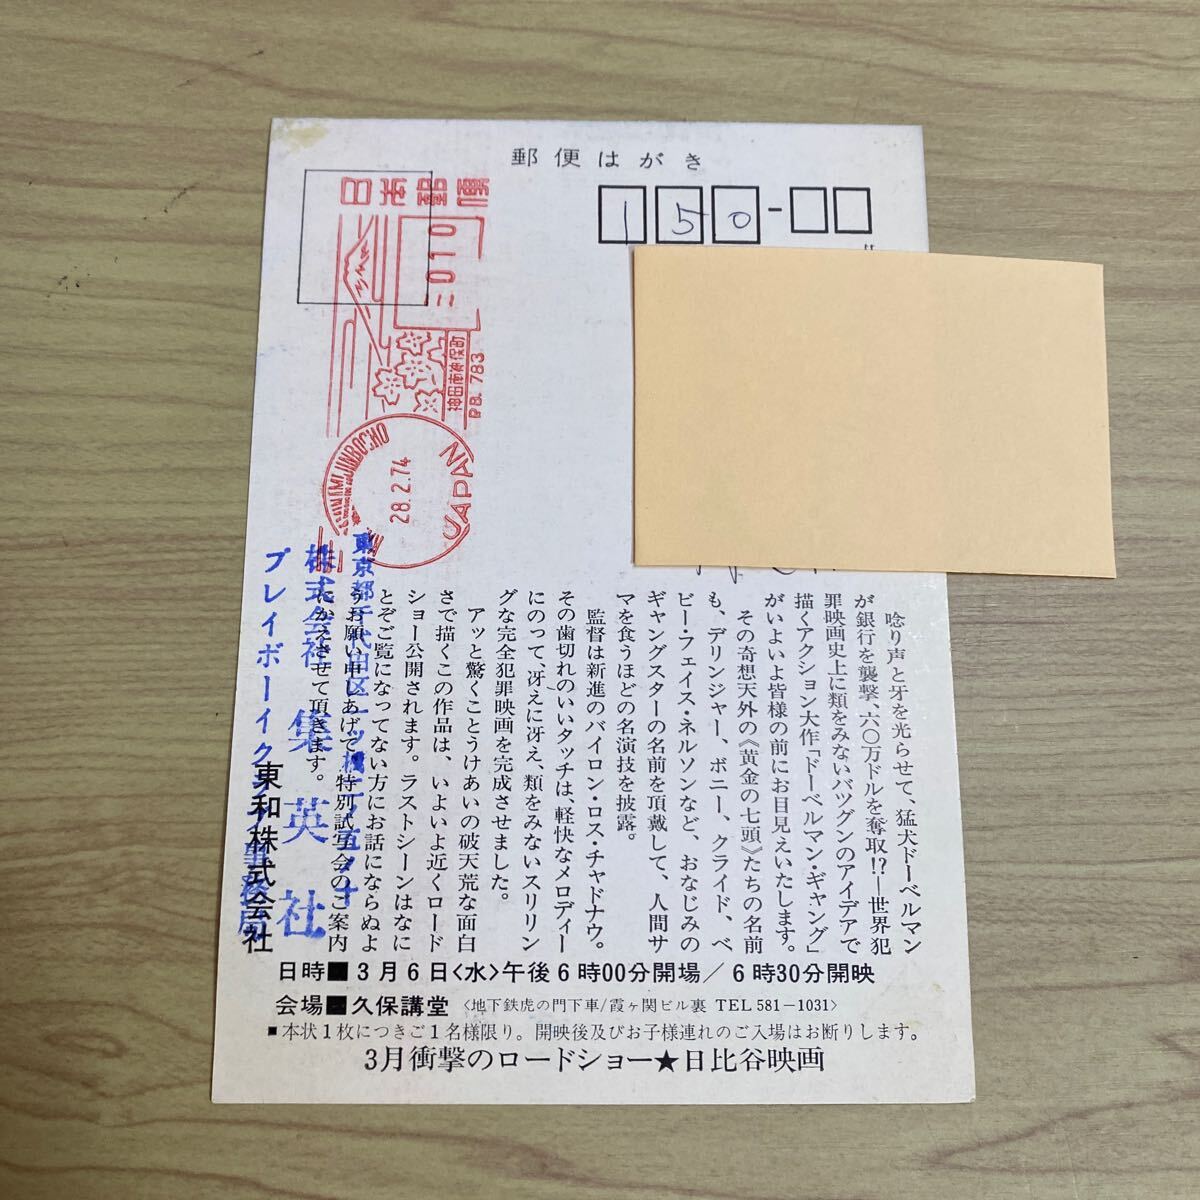 郵便はがき
150-
日本郵便
010
神田南神保町
P.B. 783
28.2.74
JAPAN
唸り声と牙を光らせて、猛犬ドーベルマン
が銀行を襲撃、六〇万ドルを奪取!?―世界犯
罪映画史上に類をみないバツグンのアイデアで
描くアクション大作「ドーベルマン・ギャング」
がいよいよ皆様の前にお目見えいたします。
その奇想天外の《黄金の七頭》たちの名前
も、デリンジャー、ボニー、クライド、ベ
ビー・フェイス・ネルソンなど、おなじみの
ギャングスターの名前を頂戴して、人間サ
マを食うほどの名演技を披露。
監督は新進のバイロン・ロス・チャドナウ。
その歯切れのいいタッチは、軽快なメロディー
にのって、冴えに冴え、類をみないスリリン
グな完全犯罪映画を完成させました。
アッと驚くことうけあいの破天荒な面白
さで描くこの作品は、いよいよ近くロード
ショー公開されます。ラストシーンはなに
とぞご覧になってない方にお話にならぬよ
うお願い申しあげて、特別試写会のご案内
にかえさせて頂きます。
東和株式会社
東京都千代田区一ツ橋二ノ五ノ十
株式会社 集英社
プレイボーイクラブ事務局
日時■3月6日〈水〉午後6時00分開場/6時30分開映
会場■久保講堂〈地下鉄虎の門下車/霞ヶ関ビル裏 TEL 581-1031〉
■本状1枚につきご1名様限り。開映後及びお子様連れのご入場はお断りします。
3月衝撃のロードショー★日比谷映画